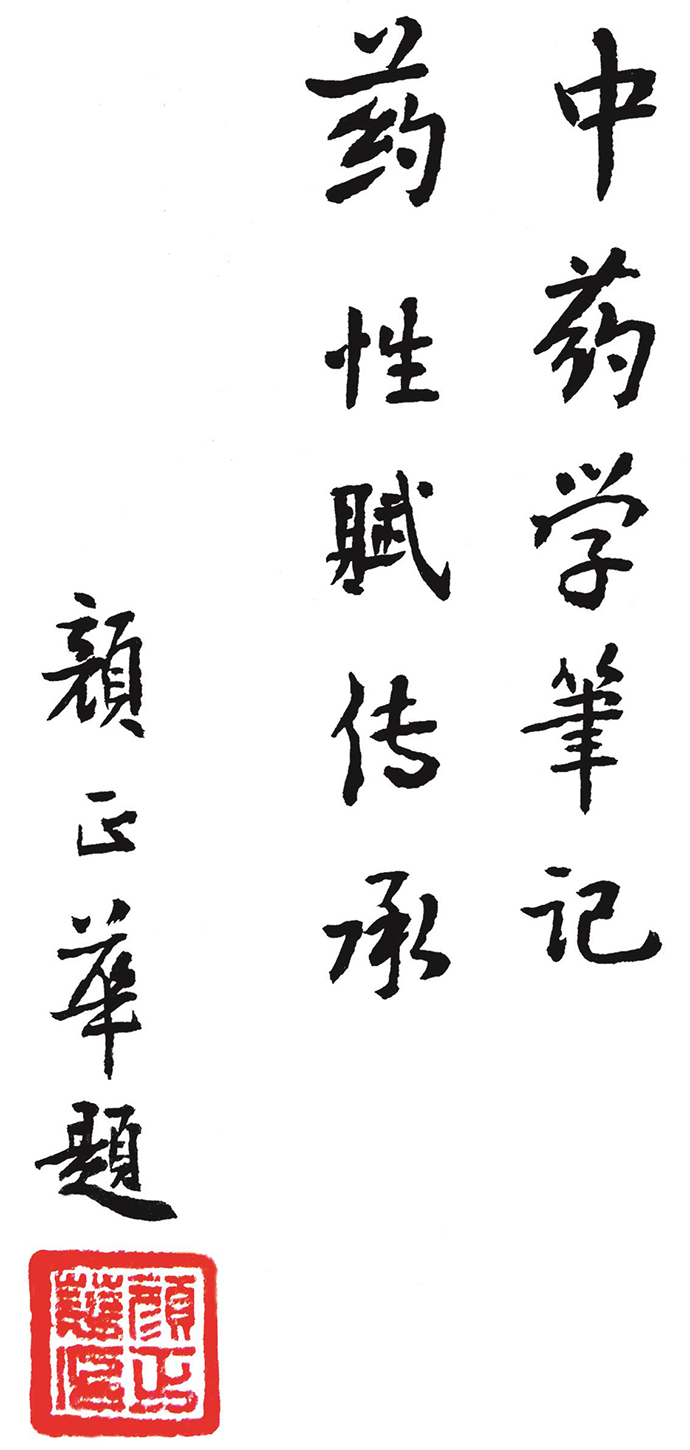 中药学筆记
药性赋传承
顔正華题
顔正華印